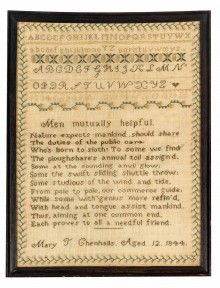 ABCDEFGHIJKLMNOPQRSTUVWXYZ
abcdefghijklmnopqrstuvwxyz
ABCDEFGHIJKLMN
OPQRSTUVWXYZ
Men mutually helpful.
Nature expects mankind should share
The duties of the public care.
Who's born to sloth? To some we find
The ploughshares annual toil assign'd.
Some at the sounding anvil glow;
Some the swift sliding shuttle throw;
Some studious of the wind and tide,
From pole to pole, our commerce guide.
While some with genius more refin'd,
With head and tongue assist mankind.
Thus, aiming at one common end,
Each proves to all a needful friend.
Mary T Chenhalls Aged 12. 1844.